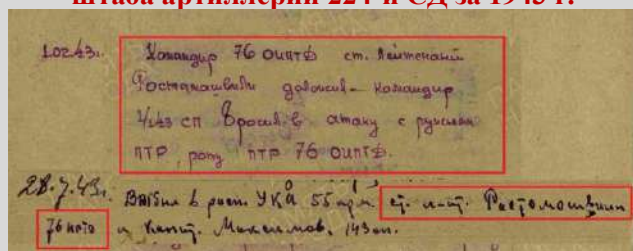 штаба артиллерии 224-й СД за 1943 г.
1.02.43г. Командир 76 ОИПТД ст. лейтенант
Ростомашвили доложил – командир
1/143 СП бросил в атаку с ружьями
ПТР роту ПТР 76 ОИПТД.
28.7.43г. в расп. УКА 55 ст. л-т. Ростомошвили
76 ИПТД и капит. Максимов, 143 оп.